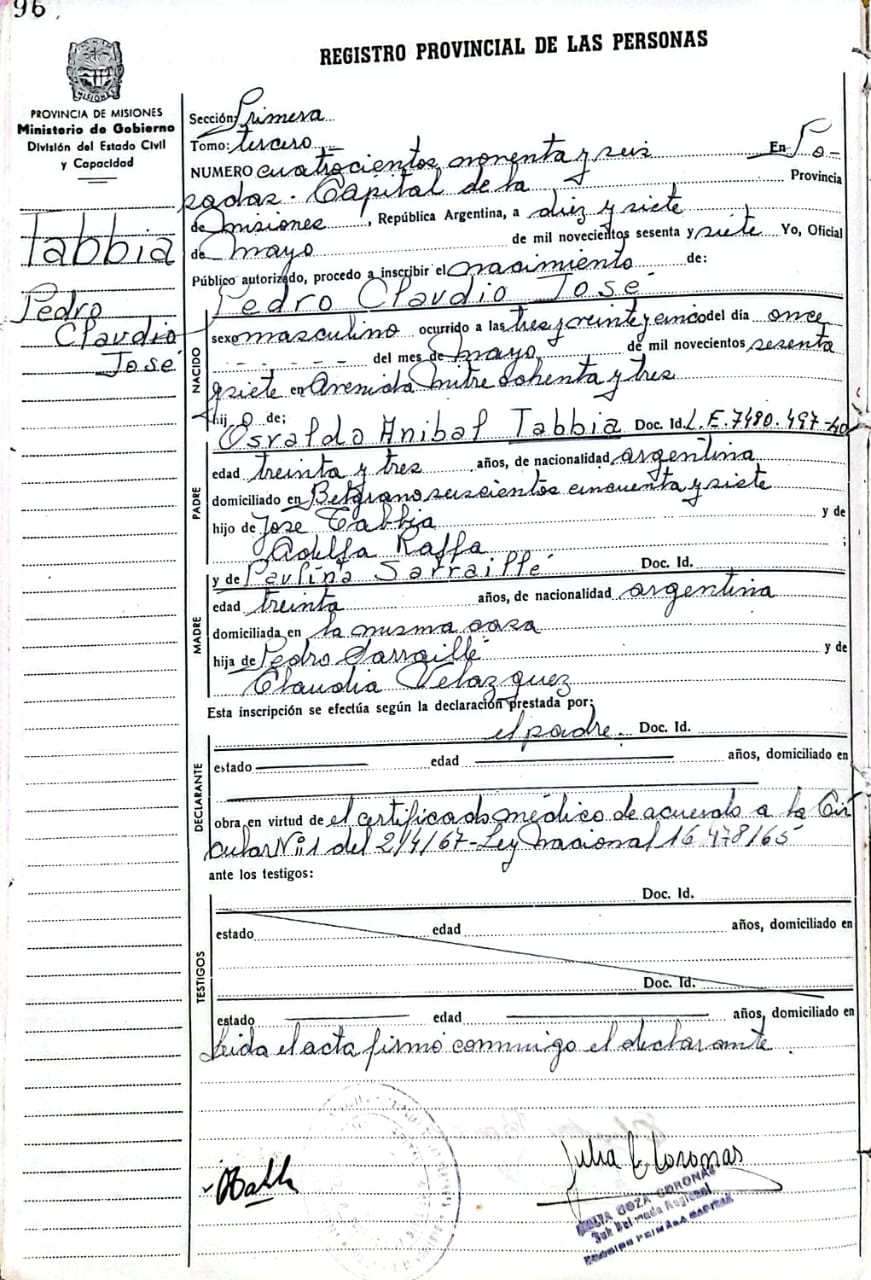 96
REGISTRO PROVINCIAL DE LAS PERSONAS
PROVINCIA DE MISIONES
Ministerio de Gobierno
División del Estado Civil
y Capacidad
Tabbia
Pedro
Claudio
José
Sección: Primera
Tomo: tercero
NUMERO cuatrocientos noventa y seis En Po-
sadas. Capital de la Provincia
de Misiones, República Argentina, a diez y siete
de mayo de mil novecientos sesenta y siete Yo, Oficial
Público autorizado, procedo a inscribir el nacimiento de:
Pedro Claudio José
NACIDO
sexo masculino ocurrido a las tres y veinte y cinco del día once
del mes de mayo de mil novecientos sesenta
y siete en Avenida Mitre ochenta y tres
hijo de;
Osvaldo Anibal Tabbia Doc. Id. L.E. 7480.497-
PADRE
edad treinta y tres años, de nacionalidad argentina
domiciliado en Belgrano seiscientos cincuenta y siete
hijo de José Tabbia y de
Adelfa Raffa ;
MADRE
y de Paulina Sarraillé Doc. Id.
edad treinta años, de nacionalidad argentina
domiciliada en la misma casa
hija de Pedro Sarraillé y de
Claudia Velazquez
Esta inscripción se efectúa según la declaración prestada por;
el padre. Doc. Id.
DECLARANTE
estado edad años, domiciliado en
obra en virtud de el certificado médico de acuerdo a la Cir
cular Nº 1 del 2/4/67 - Ley Nacional 16.478/65
ante los testigos:
TESTIGOS
Doc. Id.
estado edad años, domiciliado en
Doc. Id.
estado edad años, domiciliado en
Leida el acta firmó conmigo el declarante.
Julia G. Coronas
JULIA GOZA CORONAS